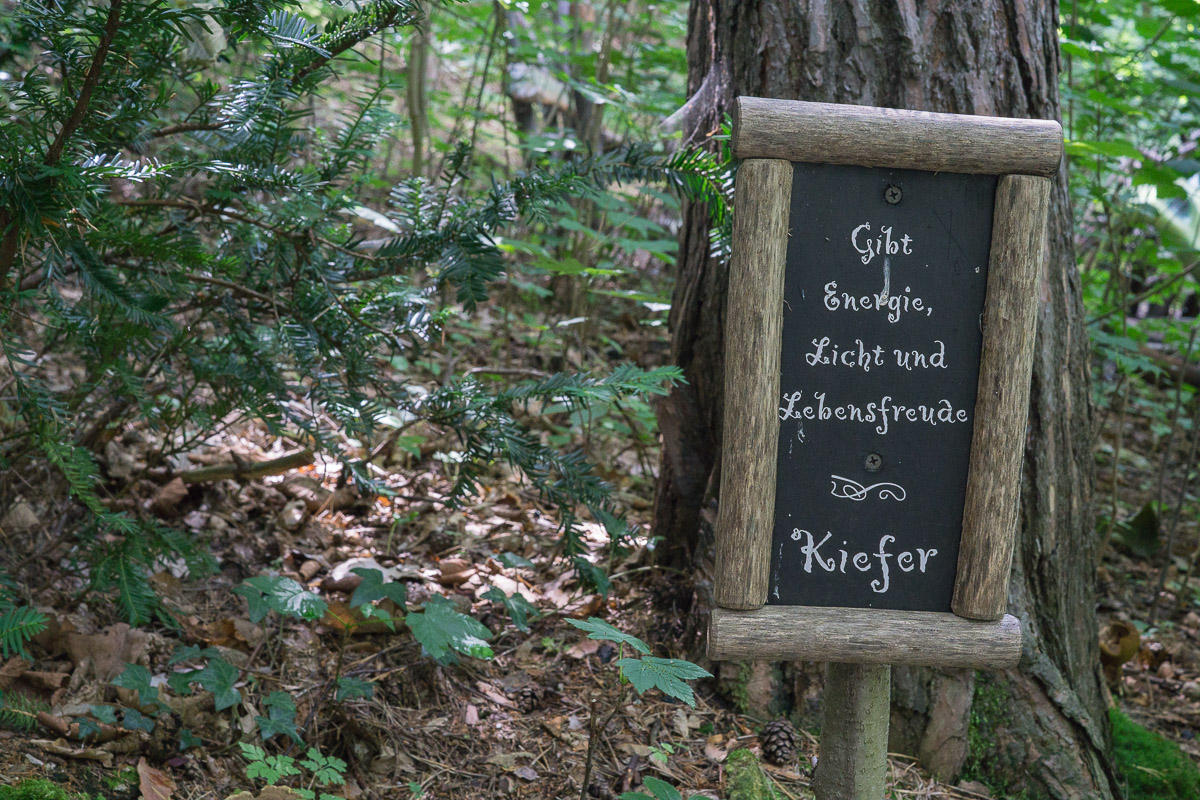 Gibt
Energie,
Licht und
Lebensfreude
Kiefer